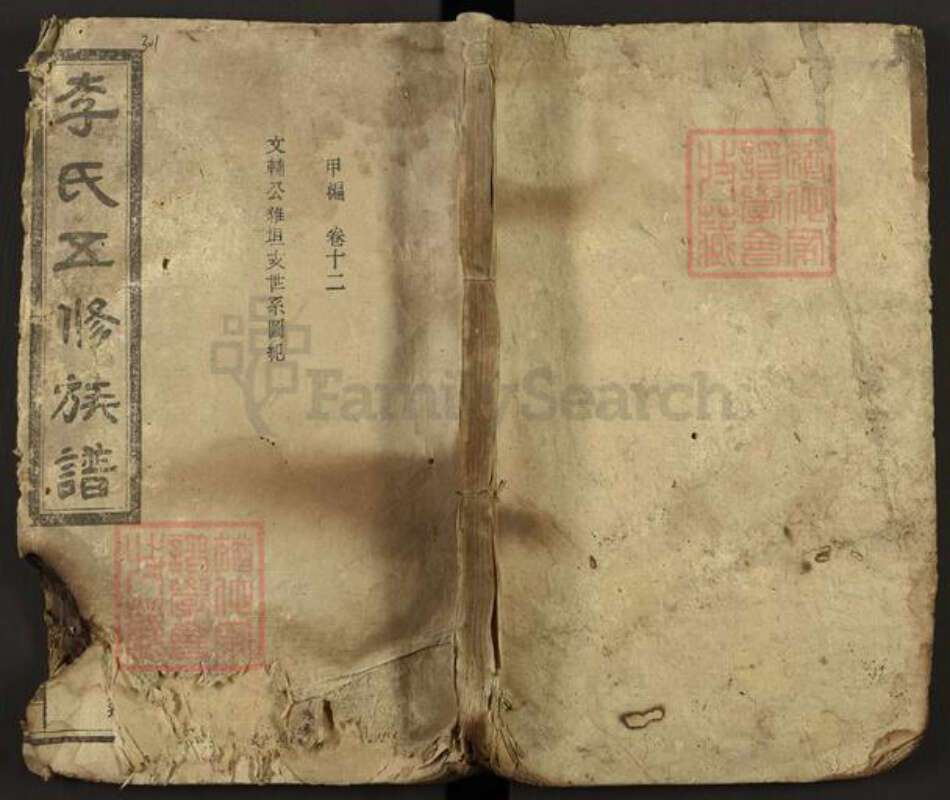 李氏五修族譜
甲編　卷十二
文輔公雅垣支世系圖祀
FamilySearch
301